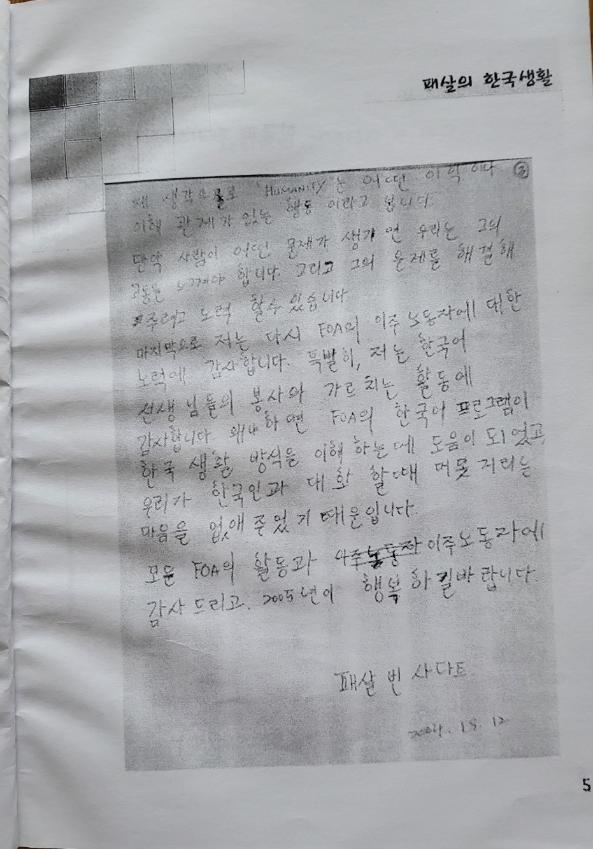 패살의 한국생활
제 생각으로 "HUMANITY"는 어떤 이익이나 ③
이해 관계가 있는 행동 이라고 봅니다.
만약 사람이 어떤 문제가 생기면 우리는 그의
고통을 느껴야 합니다. 그리고 그의 문제를 해결해
주려고 노력 할수 있습니다
마지막으로 저는 다시 FOA의 이주 노동자에 대한
노력에 감사합니다. 특별히, 저는 한국어
선생님들의 봉사와 가르치는 활동에
감사합니다. 왜냐하면 FOA의 한국어 프로그램이
한국 생활 방식을 이해 하는데 도움이 되었고
우리가 한국인과 대화 할때 머뭇 거리는
마음을 없애 주었기 때문입니다.
모든 FOA의 활동과 이주노동자에
감사 드리고, 2005년이 행복하길 바랍니다.
패살 빈 사다트
2004. 12
5